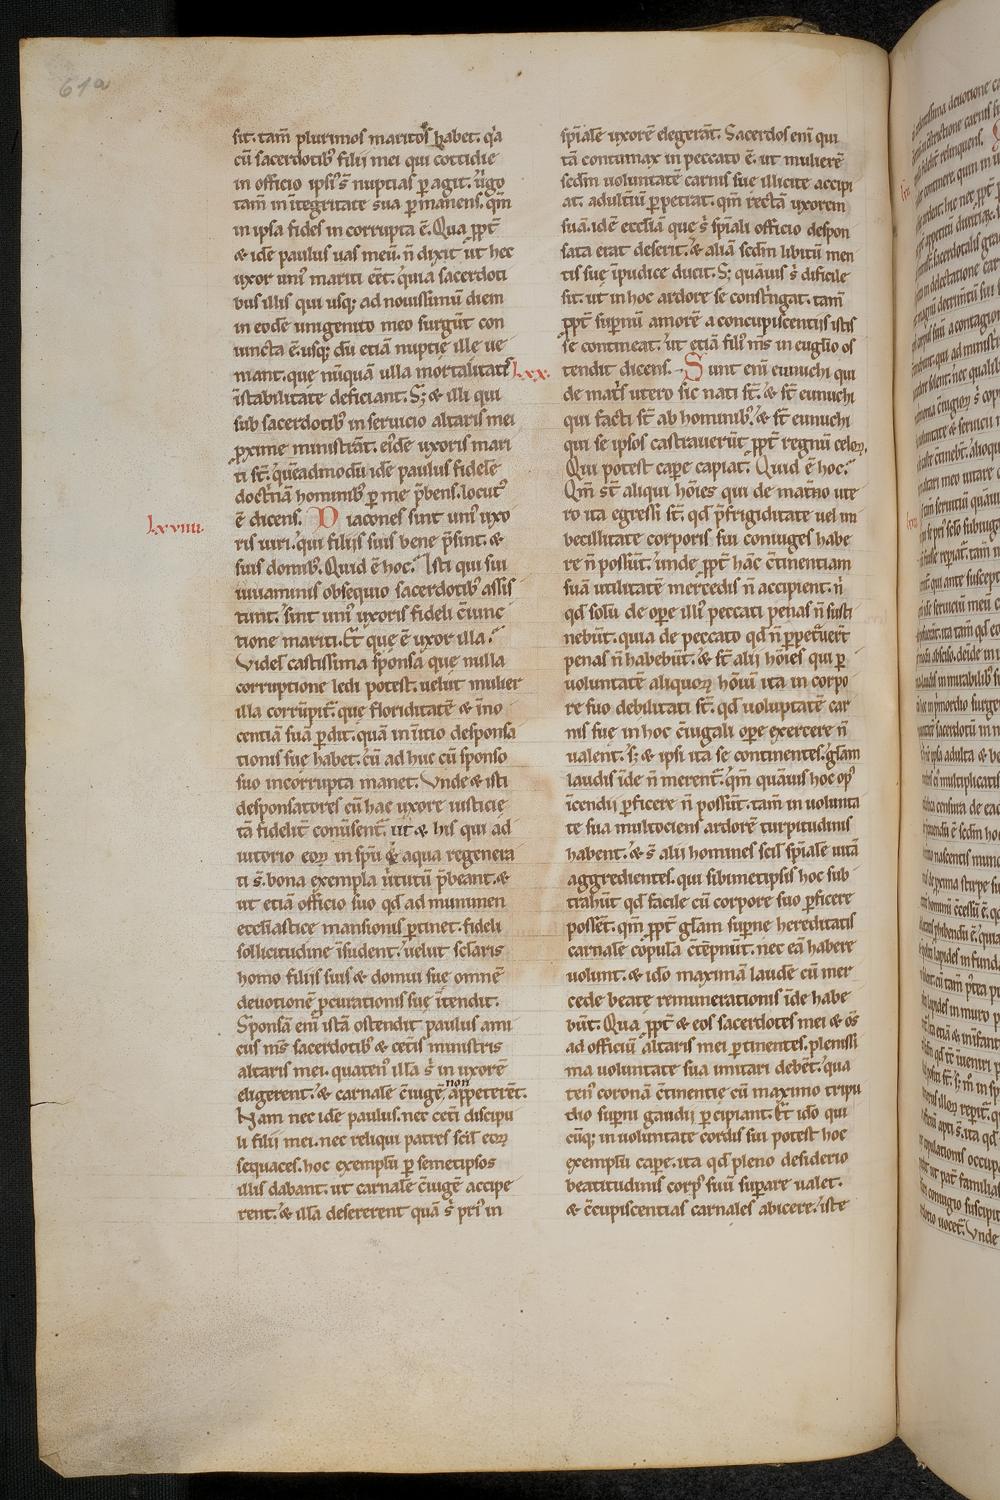 61a
sit. tam̄ plurimos maritos habet. q̇a
cū sacerdotib; filii mei qui cottidie
in officio ipsi᷒ s̄ nuptias ꝑ agit. ůgo
tam̄ in ītegritate sua ꝑmanens. qm̄
in ipsa fides in corrupta ē. Qua ꝓpt̄
& idē paulus uas meū. n̄ dixit ut hec
uxor uni᷒ mariti eēt. quia sacerdoti
bus illis qui usq; ad nouissimū diem
in eodē unigenito meo surgūt con
iuncta ē. usq; dū etiā nuptię illę ue
niant. quę nūquā ulla mortalitatis
īstabilitate deficiant. S; & illi qui
sub sacerdotib; in seruicio altaris mei
ꝓxime ministrāt. eidē uxoris mari
ti st̄. quēadmodū idē paulus fidelē
doctrinā hominib; ꝑ me p̄bens. locut᷒
ē dicens. Diacones sint uni᷒ uxo
lxviiii.
ris uiri. qui filiis suis bene p̄sint. &
suis domib;. Quid ē hoc? Isti qui sui
iuuaminis obsequio sacerdotib; assis
tunt. sint uni᷒ uxoris fideli c̄iunc
tione mariti. Et que ē uxor illa?
Videl̄ castissima sponsa que nulla
corruptione ledi potest. uelut mulier
illa corrūpit. que floriditatē & īno
centiā suā ꝑdit. quā in initio desponsa
tionis suę habet. cū ad huc cū sponso
suo incorrupta manet. Vnde & isti
desponsatores cū hac uxore iusticię
tā fidelit̄ conūsent. ut & his qui ad
iutorio eoꝝ in spū & aqua regenera
ti s̄. bona exempla ůtutū p̄beant. &
ut etiā officio suo qd̄ ad munimen
ecclesiastice mansionis ꝑtinet. fideli
sollicitudine īsudent. uelut scl̄aris
homo filiis suis & domui suę omnē
deuotionē ꝓcurationis suę ītendit.
Sponsā eni istā ostendit paulus ami
cus ms̄ sacerdotib; & cet̄is ministris
altaris mei. quaten᷒ illā s̄ in uxorē
eligerent. & carnale c̄iugē non appeterēt.
Nam nec idē paulus. nec cet̄i discipu
li filii mei. nec reliqui patres scil̄ eoꝝ
sequaces. hoc exemplū ꝑ semetipsos
illis dabant. ut carnale c̄iugē accipe
rent. & illā desererent quā s̄ pri᷒ in
spīalē uxorē elegerāt. Sacerdos eni qui
tā contumax in peccato ē. ut mulierē
scdm̄ uoluntatē carnis sue illicite accipi
at. adultiū ꝑpetrat. qm̄ rectā uxorem
suā. idē ecctiā que s̄ spīali officio despon
sata erat deserit. & aliā scdm̄ libitū men
tis suę īpudice ducit. S; quāuis s̄ dificile
sit. ut in hoc ardore se constringat. tam̄
ꝓpt̄ supnū amorē a concupiscentiis istis
se contineat. ut etiā fili᷒ ms̄ in eug̃lio os
tendit dicens. Sunt eni eunuchi qui
lxx.
de matris utero sic nati st̄. & st̄ eunuchi
qui facti st̄ ab hominib;. & st̄ eunuchi
qui se ipsos castrauerūt ꝓpt̄ regnū celoꝝ.
Qui potest capere capiat. Quid ē hoc?
Qm̄ st̄ aliqui hōies qui de mat̄no ute
ro ita egressi st̄. qd̄ p̄ frigiditate uel im
becillitate corporis sui coniuges habe
re n̄ possūt. unde ꝓpt̄ hāc c̄tinentiam
suā utilitatē mercedis n̄ accipient. n̄
qd̄ solū de oꝑe illi᷒ peccati penas n̄ susti
nebūt. quia de peccato qd̄ n̄ ꝑpetrauert̄
penas n̄ habebūt. & st̄ alii hōies qui ꝑ
uoluntatē aliquoꝝ hōiū ita in corpo
re suo debilitati st̄. qd̄ uoluptatē car
nis suę in hoc c̄iugali oꝑe exercere n̄
ualent. s; & ipsi ita se continentes. gl̄am
laudis īde n̄ merent. qm̄ quāuis hoc op᷒
īcendii ꝑficere n̄ possūt. tam̄ in uolunta
te sua multociens ardorē turpitudinis
habent. & s̄ alii homines scil̄ spīale uitā
aggredientes. qui sibimetipsis hoc sub
trahūt qd̄ facile cū corpore suo ꝑficere
possēt. qm̄ ꝓpt̄ gl̄am supne hereditatis
carnale copulā c̄tēpnūt. nec eā habere
uolunt. & ido maximā laudē cū mer
cede beate remunerationis īde habe
būt. Qua ꝓpt̄ & eos sacerdotes mei & oēs
ad officiū altaris mei ꝑtinentes. plenissi
ma uoluntate sua imitari debēt. qua
ten᷒ coronā c̄tinentię cū maximo tripu
dio supni gaudii ꝑcipiant. Et ido qui
cūq; in uoluntate cordis sui potest hoc
exemplū capere. ita qd̄ pleno desiderio
beatitudinis corp᷒ suū suꝑare ualet.
& c̄cupiscentias carnales abicere. iste